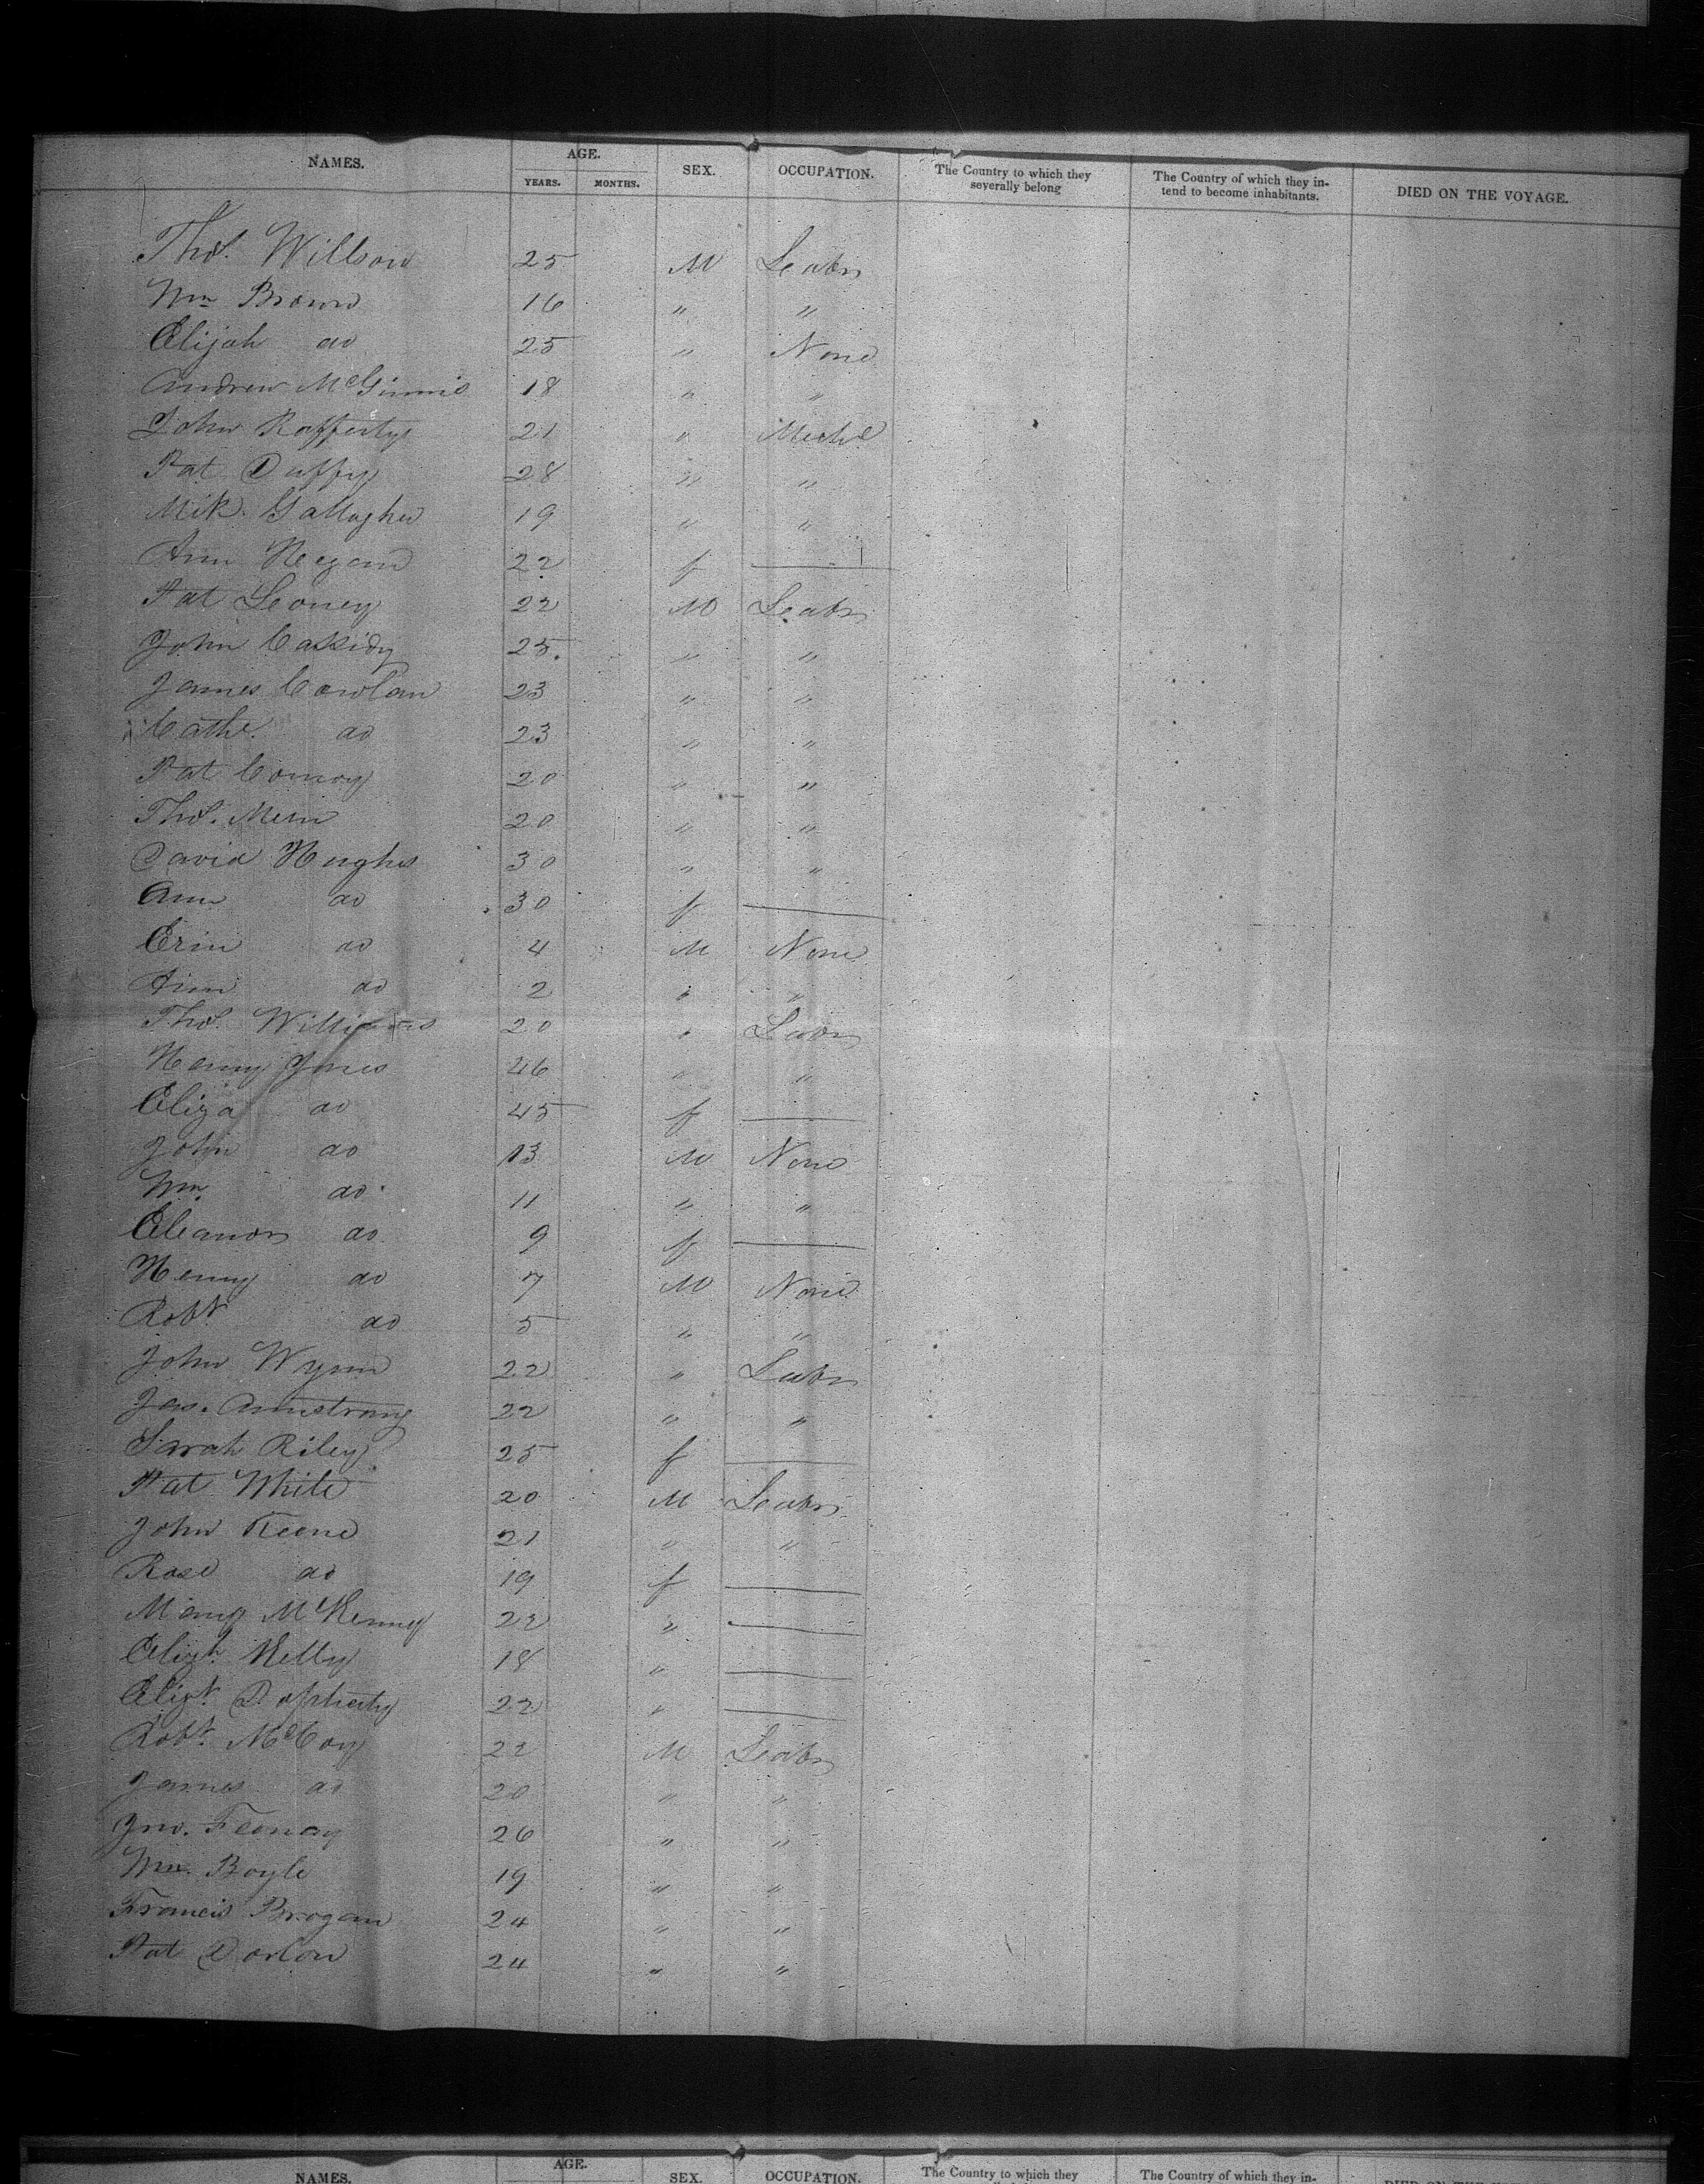 NAMES. AGE. YEARS. MONTHS. SEX. OCCUPATION. The Country to which they severally belong The Country of which they intend to become inhabitants. DIED ON THE VOYAGE.
Thos. Willson 25 M Labr
Wm Brown 16 " "
Elijah do 25 " None
Andrew McGinnis 18 " "
John Rafferty 21 " Mechc
Pat Duffy 28 " "
Mik. Gallagher 19 " "
Ann Regan 22 f —
Pat Looney 22 M Labr
John Cassidy 25. " "
James Cowlan 23 " "
Cathe. do 23 " "
Pat Conroy 20 " "
Thos. 20 " "
David Hughes 30 " "
Ann do 30 f —
Erin do 4 M None
Ann do 2 " "
Thos. Williams 20 " Labr
Henry Jones 46 " "
Eliza do 45 f —
John do 13 M None
Wm. do 11 " "
Eleanor do 9 f —
Henry do 7 M None
Robt do 5 " "
John Wynn 22 " Labr
Jas. Armstrong 22 " "
Sarah Riley 25 f —
Pat White 20 M Labr
John Keene 21 " "
Rose do 19 f —
Mary McKenney 22 " —
Elizh. Kelly 18 " —
Elizh. 22 " —
Robt. McCoy 22 M Labr
James do 20 " "
Jno. Feenay 26 " "
Wm. Boyle 19 " "
Francis Brogan 24 " "
Pat Dorlon 24 " "
NAMES. AGE. SEX. OCCUPATION. The Country to which they The Country of which they in-